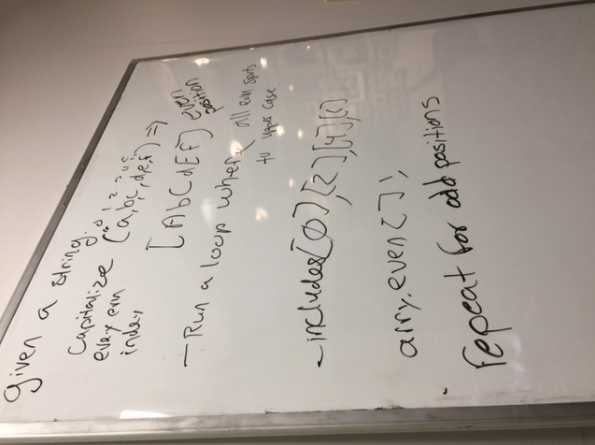 given a string.
Capitalize
every evn
index
0 1 2 3 4 5
("a,b,c,d,e,f) =>
[AbCdEf] even
position
- Run a loop where all evn spots
to upper case.
- includes[0],[2],[4],[6]
arry.even[];
repeat for odd positions